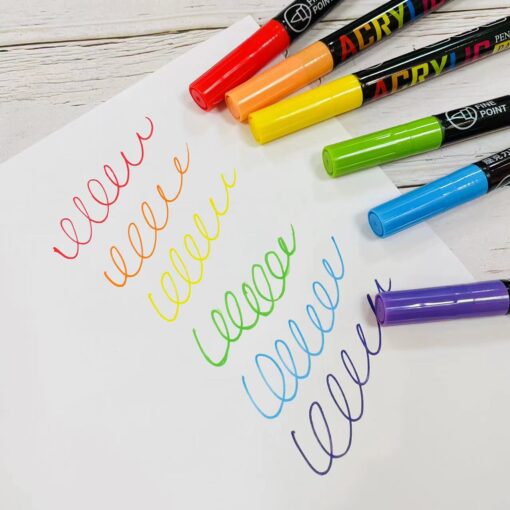 FINE
POINT
ACRYLIC
PEN
ACRYLIC
FINE
POINT